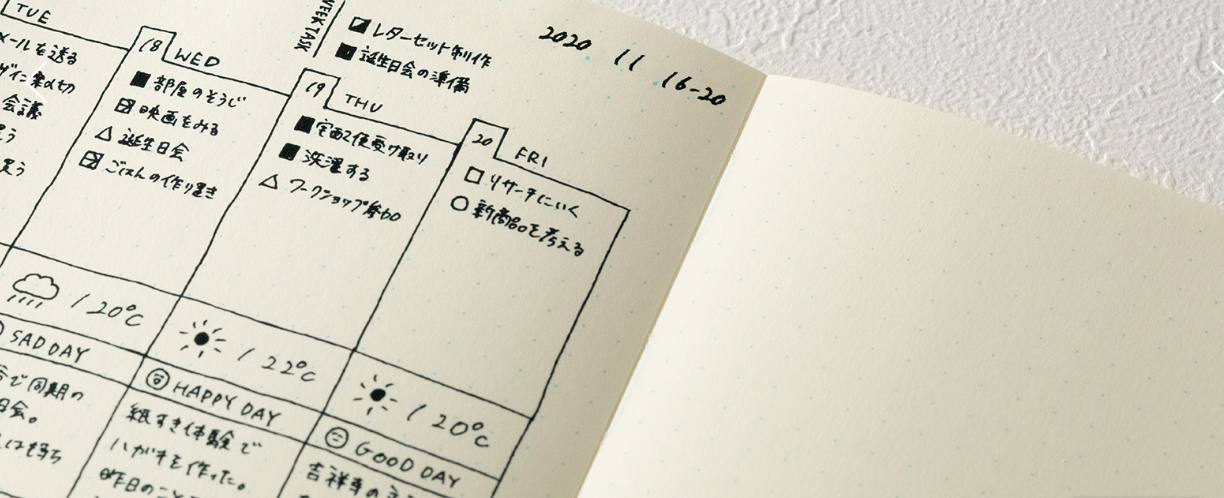 WEEK TASK
レターセット制作
誕生日会の準備
2020 11 16-20
TUE
メールを送る
会議
18 WED
部屋のそうじ
映画をみる
誕生日会
ごはんの作り置き
19 THU
洗濯する
ワークショップ参加
20 FRI
リサーチにいく
新商品を考える
/ 20℃
/ 22℃
/ 20℃
SAD DAY
HAPPY DAY
GOOD DAY
で同期の
会。
紙すき体験で
ハガキを作った。
昨日のこと
吉祥寺の